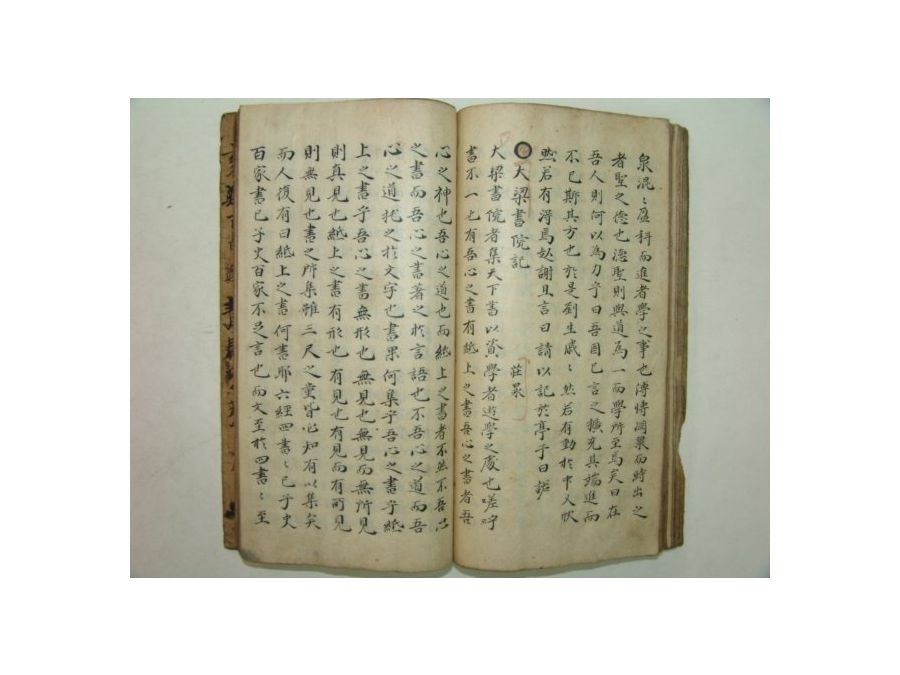 泉混〻盈科而進者學之事也溥博淵泉而時出之
者聖之德也德聖則與道爲一而學所至焉矣曰在
吾人則何以爲力乎曰吾固已言之擴充其端進而
不已斯其方也於是劉生戚〻然若有動於中又怳
然若有得焉起謝且言曰請以記於亭乎曰諾
大梁書院記
莊㫤
大梁書院者集天下書以資學者遊學之處也嗟呼
書不一也有吾心之書有紙上之書吾心之書者吾
心之神也吾心之道也而紙上之書者不然不吾心
之書而吾心之書著之於言語也不吾心之道而吾
心之道托之於文字也書果何集乎吾心之書乎紙
上之書乎吾心之書無形也無見也無見而無所見
則真見也紙上之書有形也有見也有見而有所見
則無見也書之所集雖三尺之童皆必知有以集矣
而人復有曰紙上之書何書耶六經四書〻已子史
百家書已子史百家不足言也而文至於四書〻至